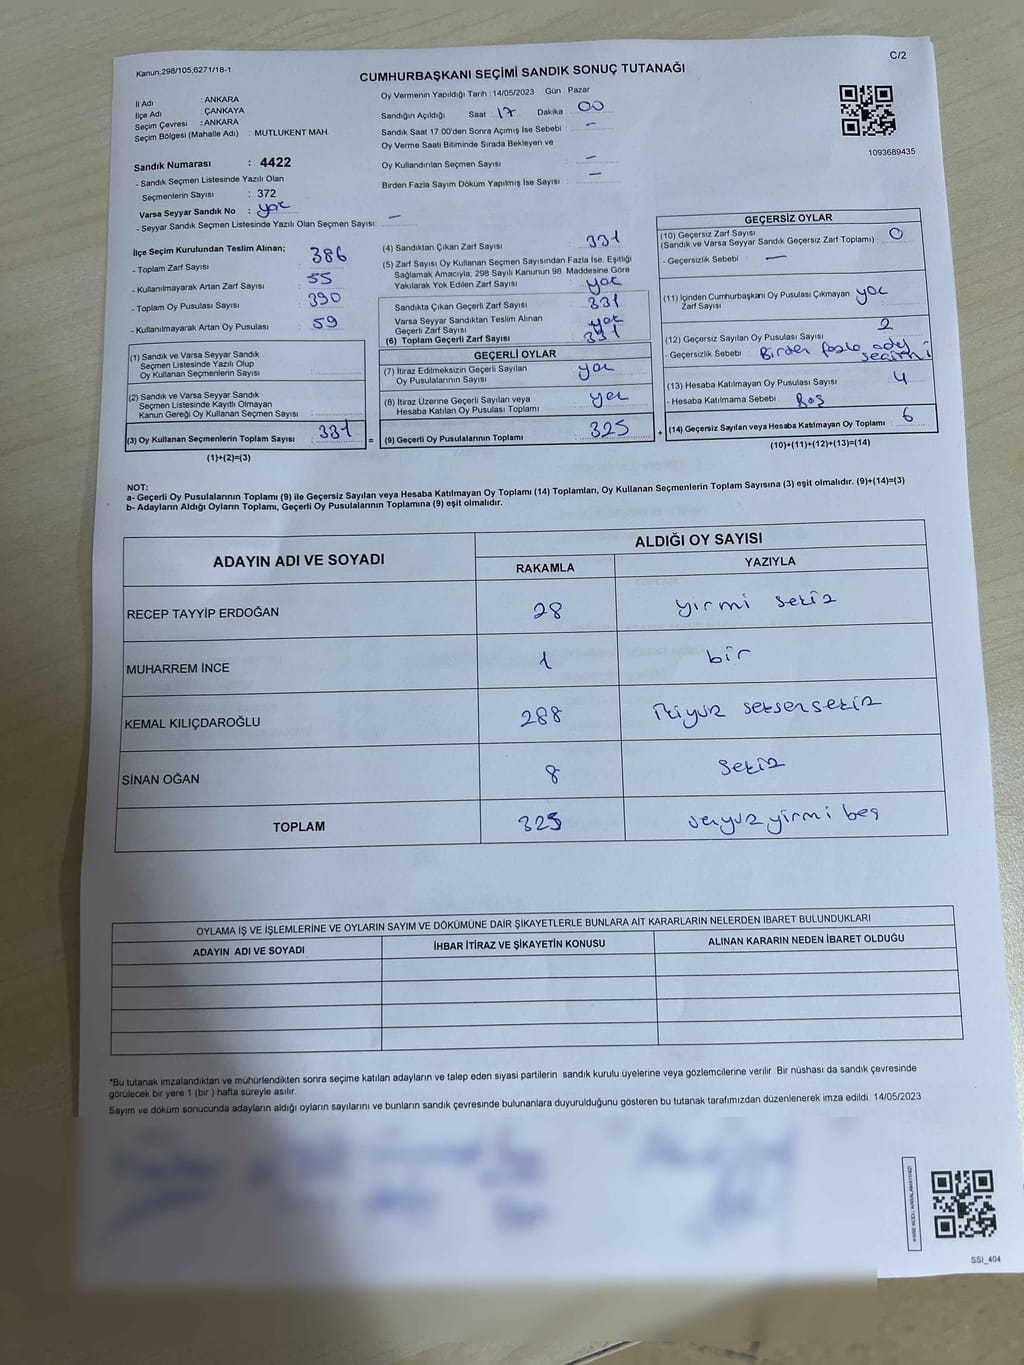 Kanun;298/105;6271/18-1
C/2
CUMHURBAŞKANI SEÇİMİ SANDIK SONUÇ TUTANAĞI
İl Adı : ANKARA
İlçe Adı : ÇANKAYA
Seçim Çevresi : ANKARA
Seçim Bölgesi (Mahalle Adı) : MUTLUKENT MAH.
Sandık Numarası : 4422
- Sandık Seçmen Listesinde Yazılı Olan
Seçmenlerin Sayısı : 372
Varsa Seyyar Sandık No : yok
- Seyyar Sandık Seçmen Listesinde Yazılı Olan Seçmen Sayısı: —
Oy Vermenin Yapıldığı Tarih : 14/05/2023 Gün : Pazar
Sandığın Açıldığı Saat : 17 Dakika : 00
Sandık Saat 17.00'den Sonra Açımış İse Sebebi : —
Oy Verme Saati Bitiminde Sırada Bekleyen ve
Oy Kullandırılan Seçmen Sayısı : —
Birden Fazla Sayım Döküm Yapılmış İse Sayısı : —
1093689435
İlçe Seçim Kurulundan Teslim Alınan;
- Toplam Zarf Sayısı : 386
- Kullanılmayarak Artan Zarf Sayısı : 55
- Toplam Oy Pusulası Sayısı : 390
- Kullanılmayarak Artan Oy Pusulası : 59
(1) Sandık ve Varsa Seyyar Sandık
Seçmen Listesinde Yazılı Olup
Oy Kullanan Seçmenlerin Sayısı :
(2) Sandık ve Varsa Seyyar Sandık
Seçmen Listesinde Kayıtlı Olmayan
Kanun Gereği Oy Kullanan Seçmen Sayısı :
(3) Oy Kullanan Seçmenlerin Toplam Sayısı : 331
(1)+(2)=(3)
=
(4) Sandıktan Çıkan Zarf Sayısı : 331
(5) Zarf Sayısı Oy Kullanan Seçmen Sayısından Fazla İse, Eşitliği
Sağlamak Amacıyla; 298 Sayılı Kanunun 98. Maddesine Göre
Yakılarak Yok Edilen Zarf Sayısı : yok
Sandıkta Çıkan Geçerli Zarf Sayısı : 331
Varsa Seyyar Sandıktan Teslim Alınan
Geçerli Zarf Sayısı : yok
(6) Toplam Geçerli Zarf Sayısı : 331
GEÇERLİ OYLAR
(7) İtiraz Edilmeksizin Geçerli Sayılan
Oy Pusulalarının Sayısı : yok
(8) İtiraz Üzerine Geçerli Sayılan veya
Hesaba Katılan Oy Pusulası Toplamı : yok
(9) Geçerli Oy Pusulalarının Toplamı : 325
+
GEÇERSİZ OYLAR
(10) Geçersiz Zarf Sayısı
(Sandık ve Varsa Seyyar Sandık Geçersiz Zarf Toplamı) : 0
- Geçersizlik Sebebi : —
(11) İçinden Cumhurbaşkanı Oy Pusulası Çıkmayan : yok
Zarf Sayısı
(12) Geçersiz Sayılan Oy Pusulası Sayısı : 2
- Geçersizlik Sebebi : Birden fazla aday
seçimi
(13) Hesaba Katılmayan Oy Pusulası Sayısı : 4
- Hesaba Katılmama Sebebi : Boş
(14) Geçersiz Sayılan veya Hesaba Katılmayan Oy Toplamı : 6
(10)+(11)+(12)+(13)=(14)
NOT:
a- Geçerli Oy Pusulalarının Toplamı (9) ile Geçersiz Sayılan veya Hesaba Katılmayan Oy Toplamı (14) Toplamları, Oy Kullanan Seçmenlerin Toplam Sayısına (3) eşit olmalıdır. (9)+(14)=(3)
b- Adayların Aldığı Oyların Toplamı, Geçerli Oy Pusulalarının Toplamına (9) eşit olmalıdır.
ADAYIN ADI VE SOYADI ALDIĞI OY SAYISI
RAKAMLA YAZIYLA
RECEP TAYYİP ERDOĞAN 28 yirmi sekiz
MUHARREM İNCE 1 bir
KEMAL KILIÇDAROĞLU 288 ikiyüz seksensekiz
SİNAN OĞAN 8 sekiz
TOPLAM 325 üçyüzyirmi beş
OYLAMA İŞ VE İŞLEMLERİNE VE OYLARIN SAYIM VE DÖKÜMÜNE DAİR ŞİKAYETLERLE BUNLARA AİT KARARLARIN NELERDEN İBARET BULUNDUKLARI
ADAYIN ADI VE SOYADI İHBAR İTİRAZ VE ŞİKAYETİN KONUSU ALINAN KARARIN NEDEN İBARET OLDUĞU
*Bu tutanak imzalandıktan ve mühürlendikten sonra seçime katılan adayların ve talep eden siyasi partilerin sandık kurulu üyelerine veya gözlemcilerine verilir. Bir nüshası da sandık çevresinde
görülecek bir yere 1 (bir) hafta süreyle asılır.
Sayım ve döküm sonucunda adayların aldığı oyların sayılarını ve bunların sandık çevresinde bulunanlara duyurulduğunu gösteren bu tutanak tarafımızdan düzenlenerek imza edildi. 14/05/2023
SSI_404